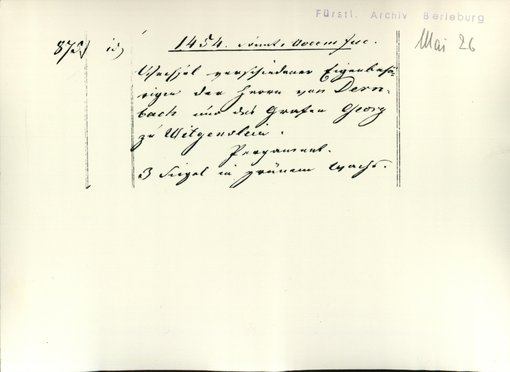 Fürstl. Archiv Berleburg
Mai 26
875 id,
1454. Vocem Juc.
Wechsel verschiedener Eigenbehö-
rigen der Herrn von Dern-
bach und des Grafen Georg
zu Witgenstein.
Pergament.
3 Siegel in grünem Wachs.